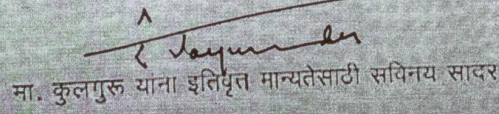 मा. कुलगुरू यांना इतिवृत्त मान्यतेसाठी सविनय सादर